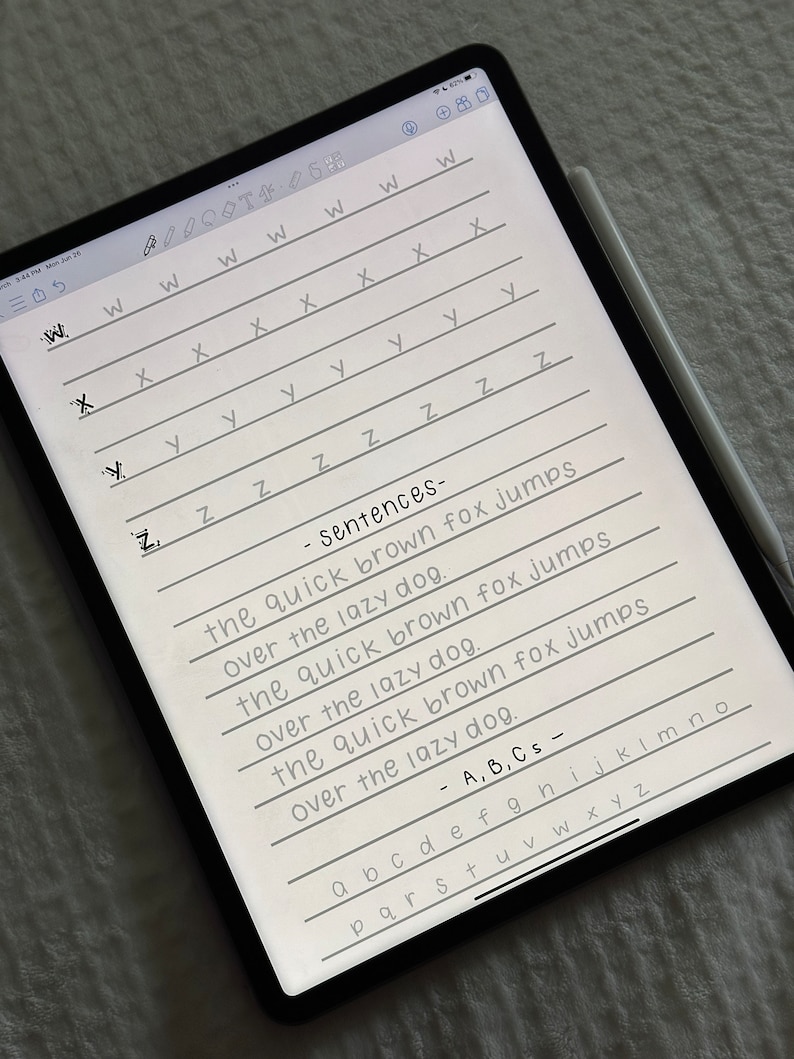 3:44 PM Mon Jun 26
62%
w w w w w w w w
x x x x x x x x
y y y y y y y y
z z z z z z z z
- sentences-
the quick brown fox jumps
over the lazy dog.
the quick brown fox jumps
over the lazy dog.
the quick brown fox jumps
over the lazy dog.
- A, B, Cs -
a b c d e f g h i j k l m n o
p q r s t u v w x y z